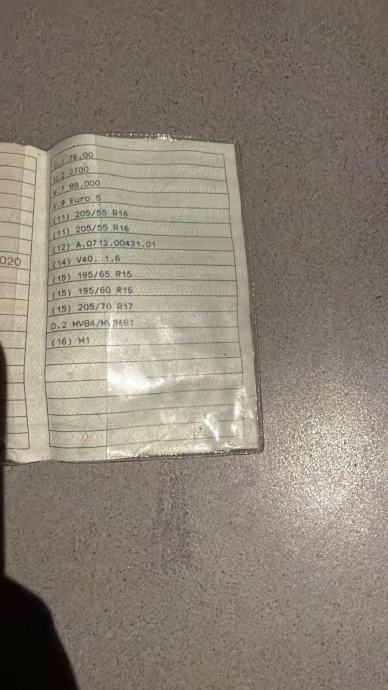 76,00
U.2 2700
V.7 98,000
V.9 Euro 5
(11) 205/55 R16
(11) 205/55 R16
(12) A.0712.00431.01
020
(14) V40, 1,6
(15) 195/65 R15
(15) 195/60 R16
(15) 205/70 R17
D.2
(16) M1